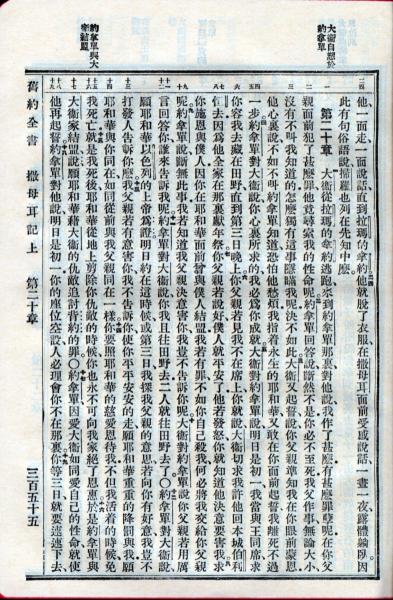 大衞自愬於
約拿單
約拿單與大
衞結盟
他一面走、一面說話直到拉瑪的拿約他就脫了衣服在撒母耳面前受感說話一晝一夜露體躺臥因
此有句俗語說掃羅也列在先知中麽
第二十章 大衞從拉瑪的拿約逃跑來到約拿單那裏對他說我作了甚麽有甚麽罪孽呢在你父
親面前犯了甚麽罪他竟尋索我的性命呢約拿單回答說斷然不是你必不至死我父作事無論大小
沒有不叫我知道的怎麽獨有這事隱瞞我呢決不如此大衞又起誓說你父親準知我在你眼前蒙恩
他心裏說不如不叫約拿單知道恐怕他愁煩我指着永生的耶和華又敢在你面前起誓我離死不過
一步約拿單對大衞說你心裏所求的我必爲你成就大衞對約拿單說明日是初一我當與王同席求
你容我去藏在田野直到第三日晚上你父親若見我不在席上你就說大衞切求我許他回本城伯利
恆去因爲他全家在那裏獻年祭你父親若說好僕人就平安了他若發怒你就知道他決意要害我求
你施恩與僕人因你在耶和華面前曾與僕人結盟我若有罪不如你自己殺我何必將我交給你父親
呢約拿單說斷無此事我若知道我父親決意害你我豈不告訴你呢大衞對約拿單說你父親若用厲
言回答你誰來告訴我呢約拿單對大衞說你我且往田野去二人就往田野去了○約拿單對大衞說
願耶和華以色列的上帝爲證明日約在這時候或第三日我探我父親的意思若向你有好意我豈不
打發人告訴你麽我父親若有意害你我不告訴你使你平平安安的走願耶和華重重的降罰與我願
耶和華與你同在如同從前與我父親同在一樣你要照耶和華的慈愛恩待我不但我活着的時候免
我死亡就是我死後耶和華從地上剪除你仇敵的時候你也永不可向我家絕了恩惠於是約拿單與
大衞家結盟說願耶和華藉大衞的仇敵追討背約的罪○約拿單因愛大衞如同愛自己的性命就使
他再起誓約拿單對他說明日是初一你的座位空設人必理會你不在那裏你等三日就要速速下去
舊約全書 撒母耳記上 第二十章 三百五十五